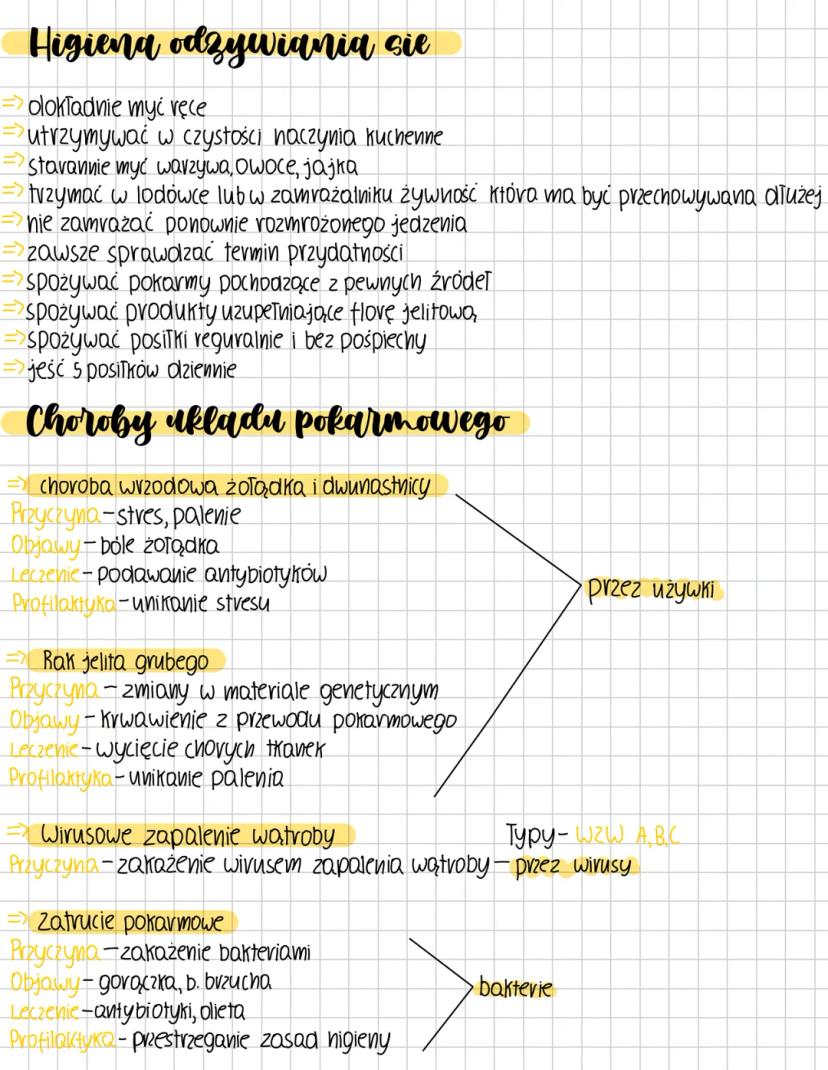 Higiena odzywiania sie
=> dokładnie myć ręce
=> utrzymywać w czystości naczynia kuchenne
=> starannie myć warzywa, owoce, jajka
=> trzymać w lodówce lub w zamrażalniku żywność która ma być przechowywana dłużej
=> nie zamrażać ponownie rozmrożonego jedzenia
=> zawsze sprawdzać termin przydatności
=> spożywać pokarmy pochodzące z pewnych źródeł
=> spożywać produkty uzupełniające florę jelitową
=> spożywać posiłki reguralnie i bez pośpiechy
=> jeść 5 posiłków dziennie
Choroby ukladu pokarmowego
=> choroba wrzodowa żołądka i dwunastnicy
Przyczyna - stres, palenie
Objawy - bóle żołądka
Leczenie - podawanie antybiotyków
przez używki
Profilaktyka - unikanie stresu
=> Rak jelita grubego
Przyczyna - zmiany w materiale genetycznym
Objawy - krwawienie z przewodu pokarmowego
Leczenie - wycięcie chorych tkanek
Profilaktyka - unikanie palenia
=> Wirusowe zapalenie wątroby Typy - WZW A,B,C
Przyczyna - zakażenie wirusem zapalenia wątroby - przez wirusy
=> Zatrucie pokarmowe
Przyczyna - zakażenie bakteriami
Objawy - gorączka, b. brzucha
bakterie
Leczenie - antybiotyki, dieta
Profilaktyka - przestrzeganie zasad higieny